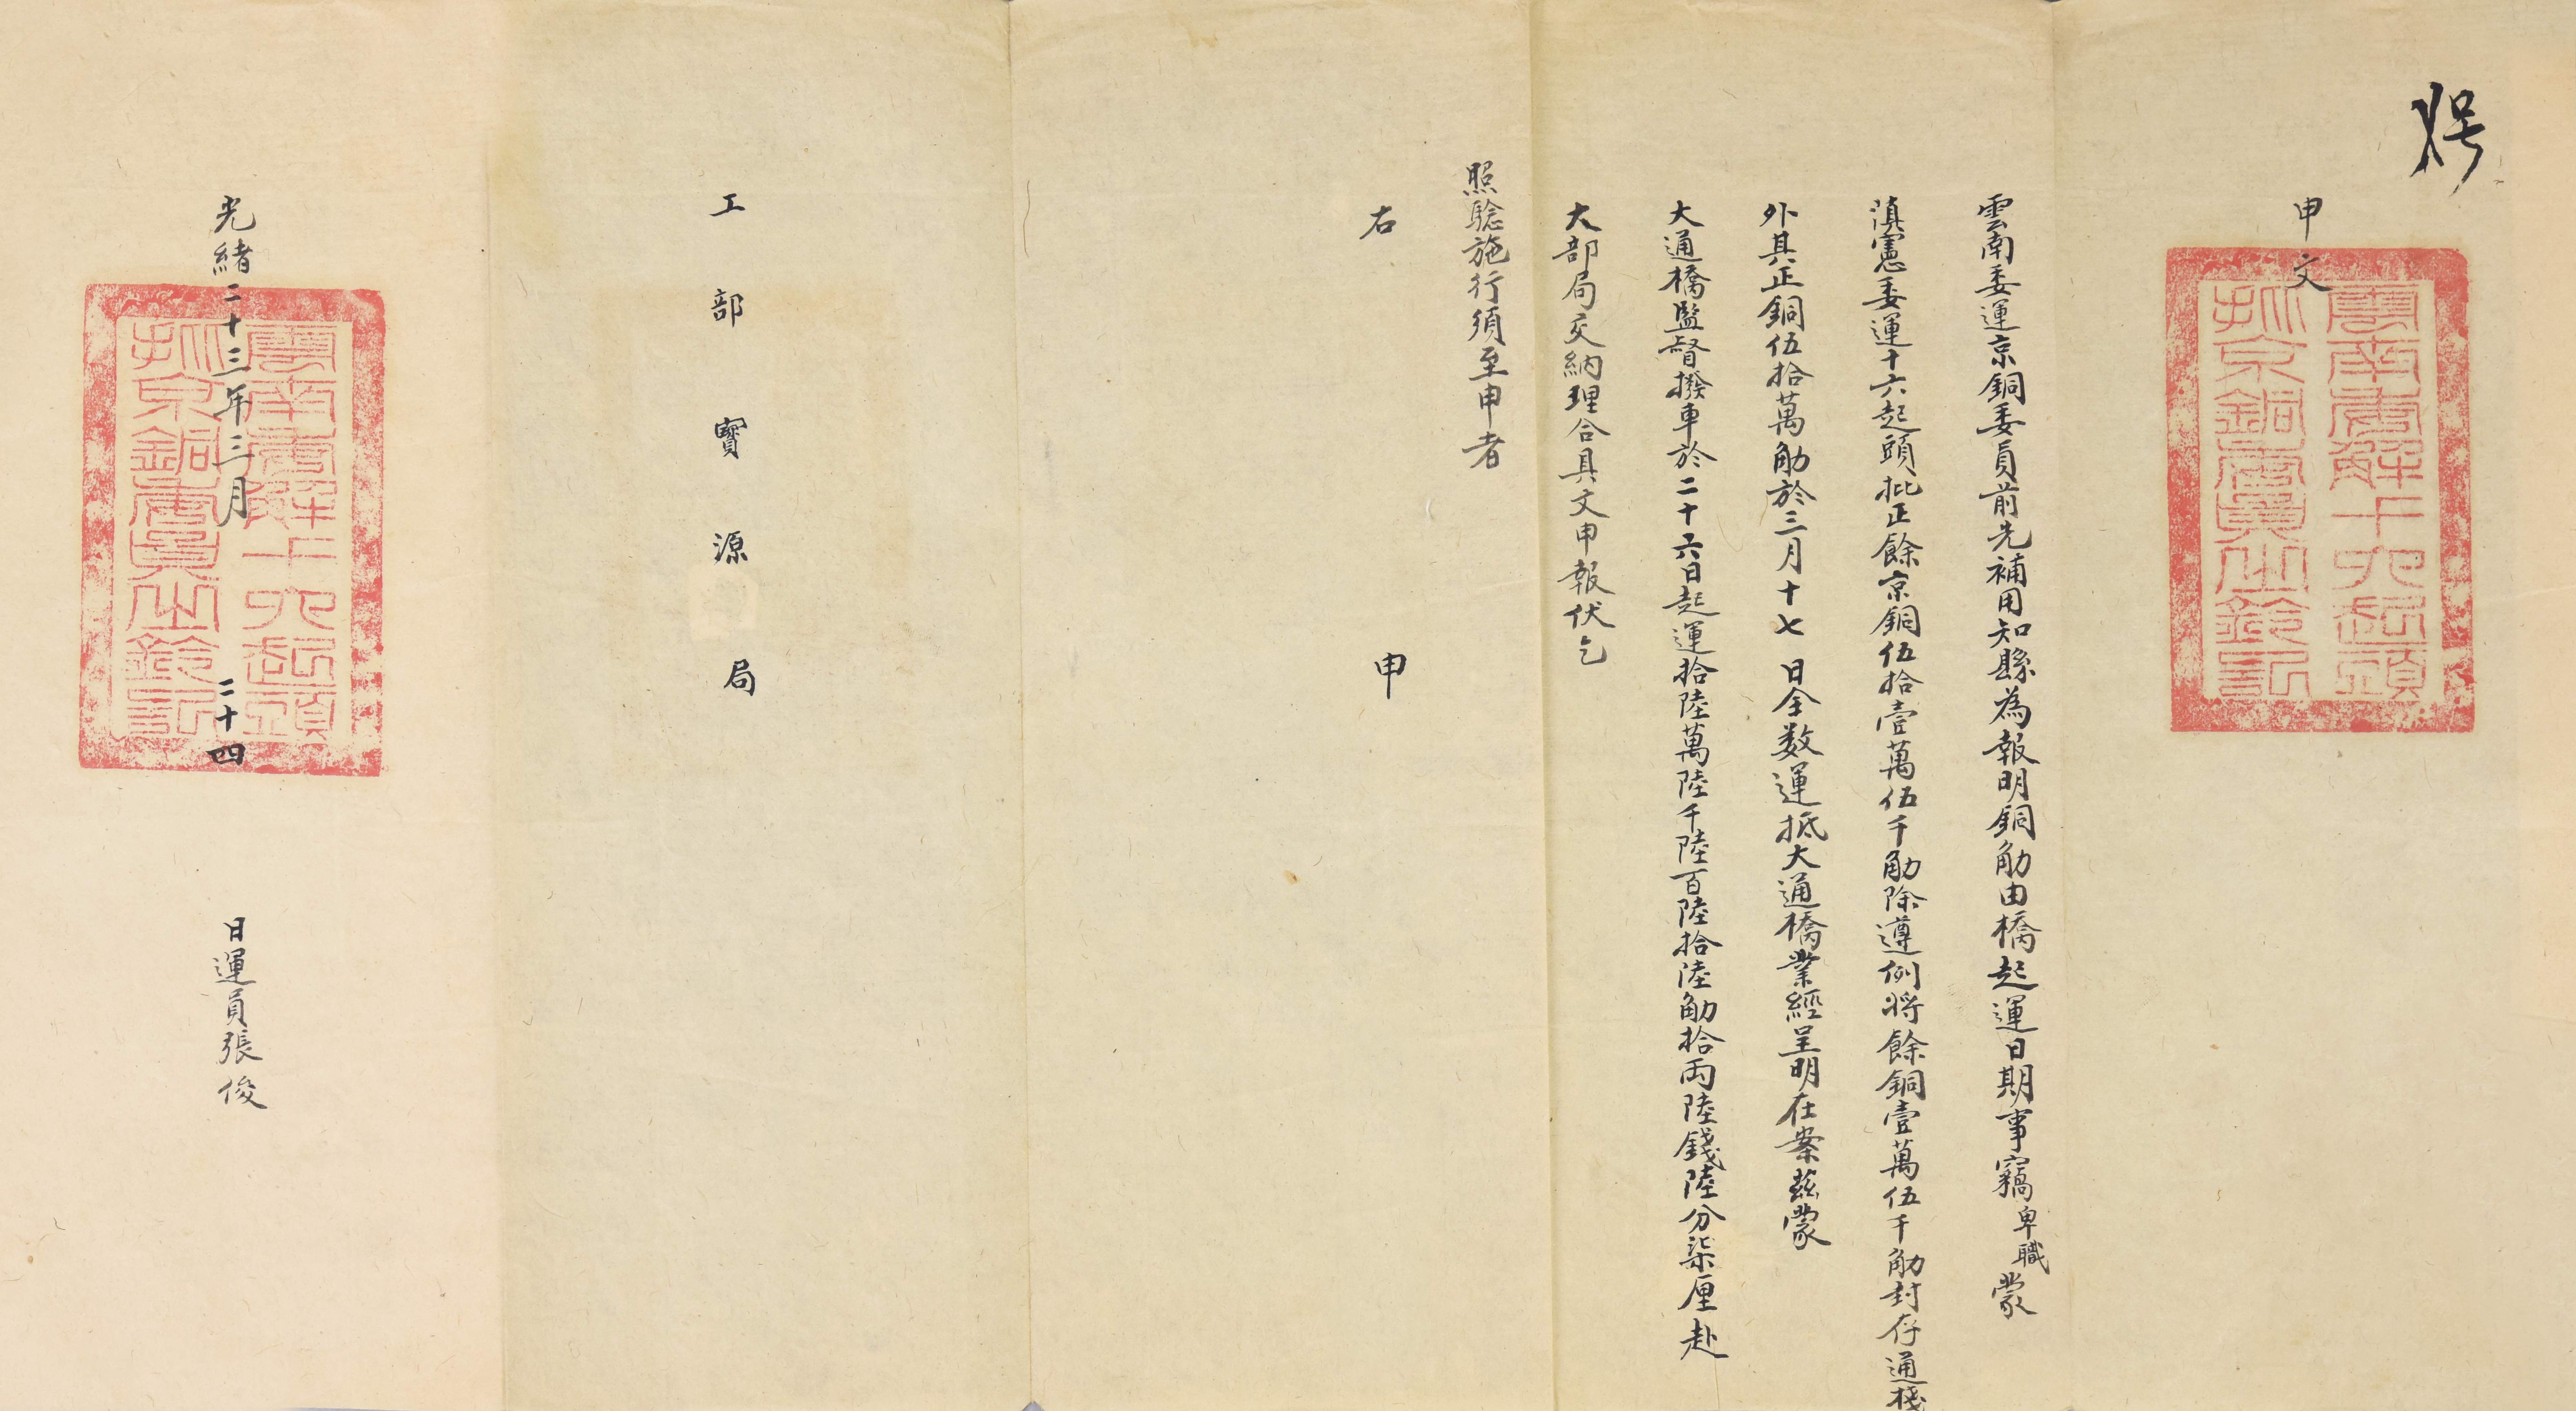 号
申文
雲南委運京銅委員前先補用知縣為報明銅觔由橋起運日期事竊卑職蒙
滇憲委運十六起頭批正餘京銅伍拾壹萬伍千觔除遵例將餘銅壹萬伍千觔封存通棧
外其正銅伍拾萬觔於三月十七日全数運抵大通橋業經呈明在案茲蒙
大通橋監督撥車於二十六日起運拾陸萬陸千陸百陸拾陸觔拾両陸錢陸分柒厘赴
大部局交納理合具文申報伏乞
照騐施行須至申者
右申
工部寶源局
光緒二十三年三月二十四日運員張俊